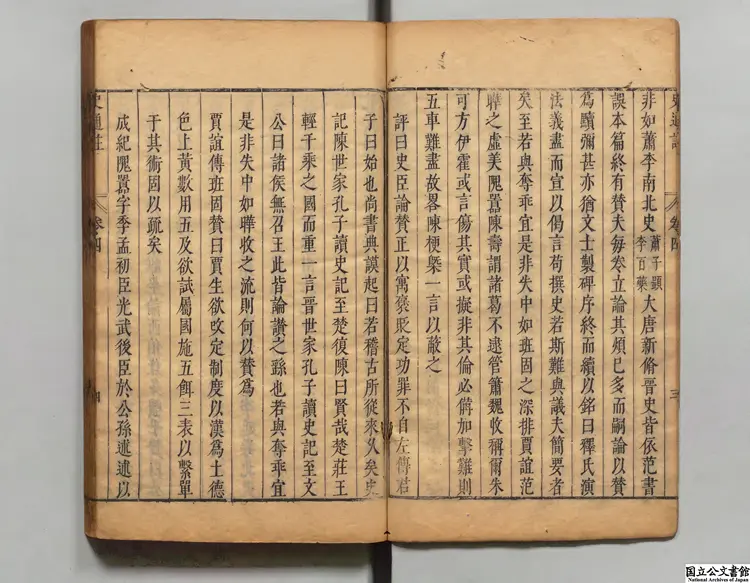 史通評
卷四
三
非如蕭李南北史
蕭子顯
李百藥
大唐新脩晉史皆依范書
誤本篇終有贊夫每卷立論其煩已多而嗣論以贊
爲黷彌甚亦猶文士製碑序終而續以銘曰釋氏演
法義盡而宣以偈言苟撰史若斯難與議夫簡要者
矣至若與奪乖宜是非失中如班固之深排賈誼范
曄之虛美隗囂陳壽謂諸葛不逮管蕭魏收稱爾朱
可方伊霍或言傷其實或擬非其倫必備加擊難則
五車難盡故畧陳梗槩一言以蔽之
評曰史臣論贊正以寓褒貶定功罪不自左傳君
子曰始也尚書典謨起曰若稽古所從來久矣史
記陳世家孔子讀史記至楚復陳曰賢哉楚莊王
輕千乘之國而重一言晉世家孔子讀史記至文
公曰諸侯無召王此皆論讚之繇也若與奪乖宜
是非失中如曄收之流則何以贊爲
賈誼傳班固贊曰賈生欲攺定制度以漢爲土德
色上黃數用五及欲試屬國施五餌三表以繫單
于其術固以疏矣
成紀隗囂字季孟初臣光武後臣於公孫述述以
史通註
卷四
四
国立公文書館
National Archives of Japan